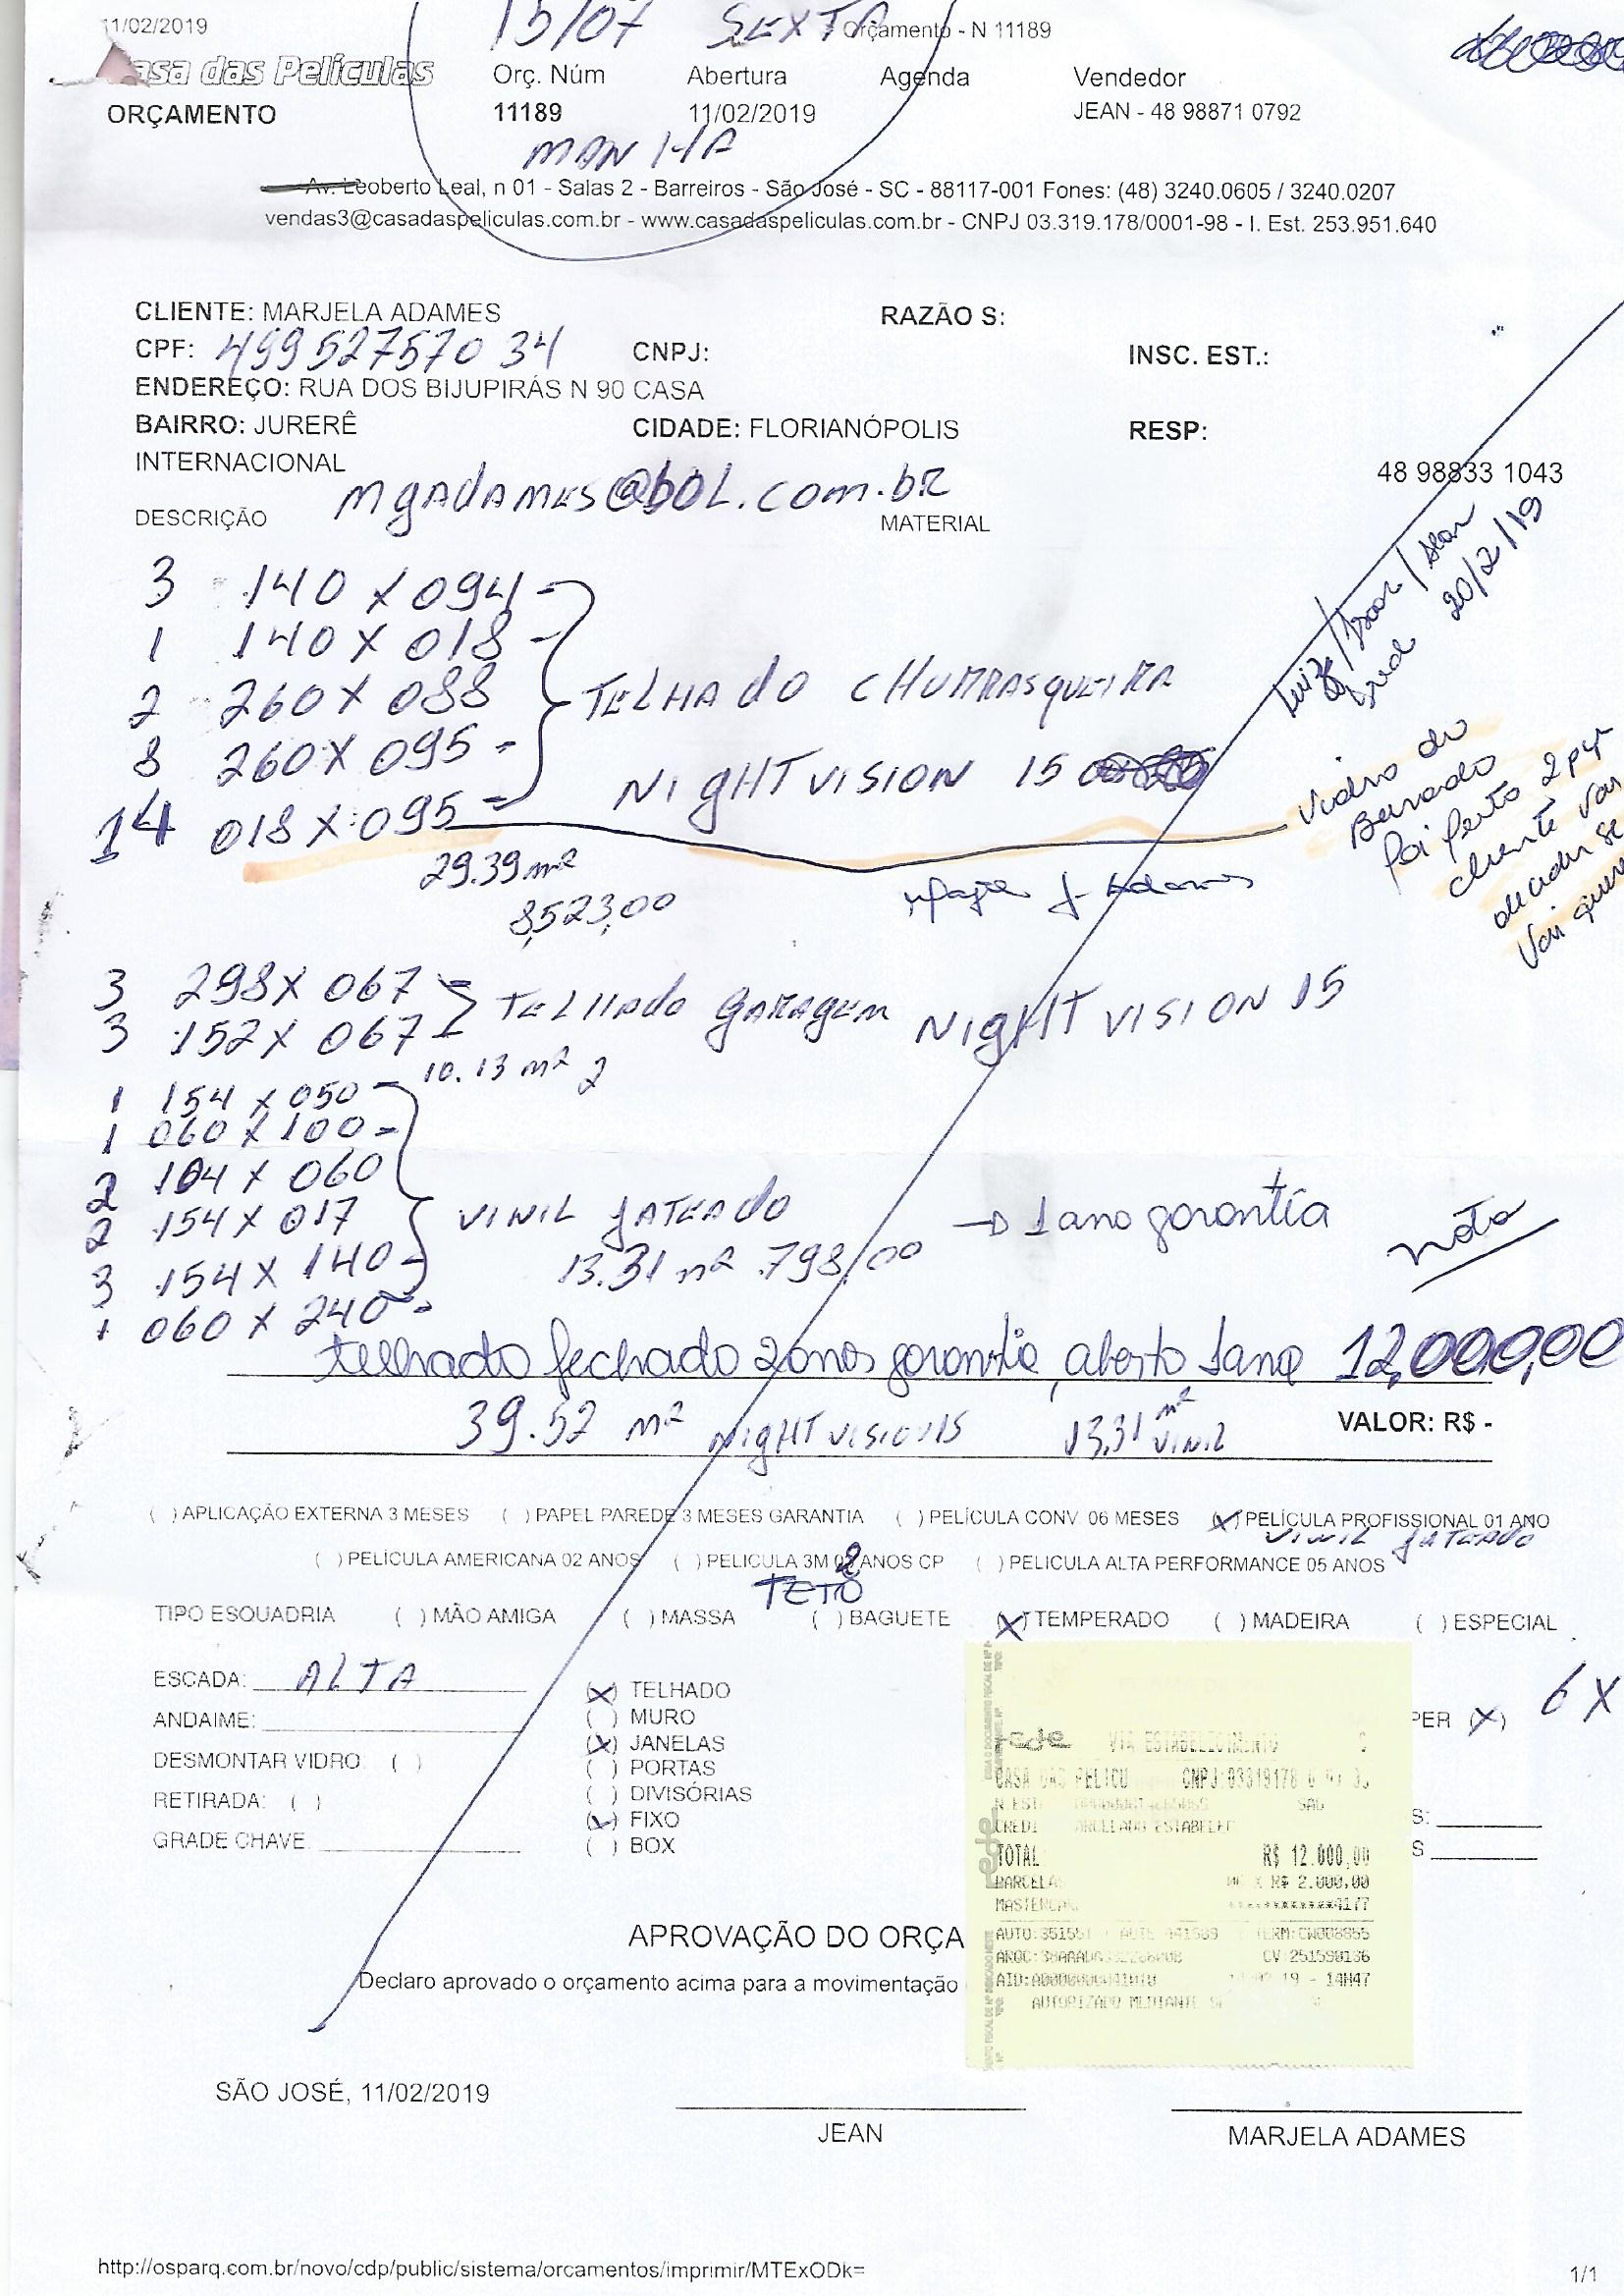 11/02/2019
15/07 SEXTA
Orçamento - N 11189
asa das Películas
Orç. Núm Abertura Agenda Vendedor
ORÇAMENTO 11189 11/02/2019 JEAN - 48 98871 0792
MANHA
Av. Leoberto Leal, n 01 - Salas 2 - Barreiros - São José - SC - 88117-001 Fones: (48) 3240.0605 / 3240.0207
vendas3@casadaspeliculas.com.br - www.casadaspeliculas.com.br - CNPJ 03.319.178/0001-98 - I. Est. 253.951.640
CLIENTE: MARJELA ADAMES RAZÃO S:
CPF: 499527570 34 CNPJ: INSC. EST.:
ENDEREÇO: RUA DOS BIJUPIRÁS N 90 CASA
BAIRRO: JURERÊ CIDADE: FLORIANÓPOLIS RESP:
INTERNACIONAL
48 98833 1043
mgadames@bol.com.br
DESCRIÇÃO MATERIAL
20/2/19
3 140 X 094
1 140 X 018
2 260 X 088
TELHADO CHURRASQUEIRA
8 260 X 095
NIGHT VISION 15
14 018 X 095
vidro do
Beirado
foi feito 2 pç
cliente vai
decidir se
vai quere
29.39 m²
8,523,00
3 298 X 067
3 152 X 067
TELHADO GARAGEM NIGHT VISION 15
10.13 m² 2
1 154 X 050
1 060 X 100
2 104 X 060
2 154 X 017
VINIL JATEADO
→ 1 ano garantia
3 154 X 140
13.31 m² 798,00
nota
1 060 X 240
telhado fechado 2 anos garantia, aberto 1 ano 12,000,00
39.52 m² NIGHT VISION 15 13,31 m² VINIL
VALOR: R$ -
( ) APLICAÇÃO EXTERNA 3 MESES ( ) PAPEL PAREDE 3 MESES GARANTIA ( ) PELÍCULA CONV. 06 MESES (X) PELÍCULA PROFISSIONAL 01 ANO
VINIL JATEADO
( ) PELÍCULA AMERICANA 02 ANOS ( ) PELICULA 3M 02 ANOS CP ( ) PELICULA ALTA PERFORMANCE 05 ANOS
2
TETO
TIPO ESQUADRIA ( ) MÃO AMIGA ( ) MASSA ( ) BAGUETE (X) TEMPERADO ( ) MADEIRA ( ) ESPECIAL
ESCADA: ALTA
ANDAIME:
DESMONTAR VIDRO: ( )
RETIRADA: ( )
GRADE CHAVE:
(X) TELHADO
( ) MURO
(X) JANELAS
( ) PORTAS
( ) DIVISÓRIAS
(X) FIXO
( ) BOX
PER (X) 6 X
S:
S
rede VIA ESTABELECIMENTO
CASA DAS PELICU CNPJ:03319178
TOTAL R$ 12.000,00
R$ 2.000,00
************4177
CV 251590136
19 - 14H47
APROVAÇÃO DO ORÇA
Declaro aprovado o orçamento acima para a movimentação
SÃO JOSÉ, 11/02/2019
JEAN
MARJELA ADAMES
http://osparq.com.br/novo/cdp/public/sistema/orcamentos/imprimir/MTExODk=
1/1